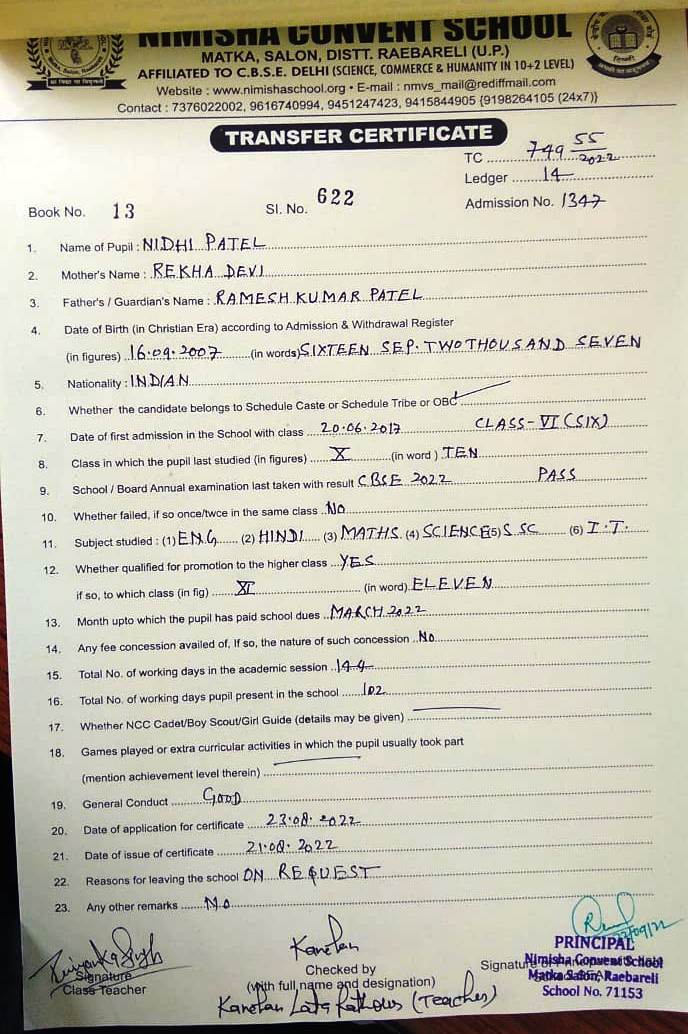 NIMISHA CONVENT SCHOOL
MATKA, SALON, DISTT. RAEBARELI (U.P.)
AFFILIATED TO C.B.S.E. DELHI (SCIENCE, COMMERCE & HUMANITY IN 10+2 LEVEL)
Website : www.nimishaschool.org • E-mail : nmvs_mail@rediffmail.com
Contact : 7376022002, 9616740994, 9451247423, 9415844905 {9198264105 (24x7)}
TRANSFER CERTIFICATE
TC 749 55/2022
Ledger 14
Book No. 13 Sl. No. 622 Admission No. 1347
1. Name of Pupil : NIDHI PATEL
2. Mother's Name : REKHA DEVI
3. Father's / Guardian's Name : RAMESH KUMAR PATEL
4. Date of Birth (in Christian Era) according to Admission & Withdrawal Register
(in figures) 16.09.2007 (in words) SIXTEEN SEP. TWO THOUSAND SEVEN
5. Nationality : INDIAN
6. Whether the candidate belongs to Schedule Caste or Schedule Tribe or OBC ✓
7. Date of first admission in the School with class 20.06.2017 CLASS-VI (SIX)
8. Class in which the pupil last studied (in figures) X (in word) TEN
9. School / Board Annual examination last taken with result CBSE 2022 PASS
10. Whether failed, if so once/twce in the same class No
11. Subject studied : (1) ENG (2) HINDI (3) MATHS (4) SCIENCE (5) S.SC (6) I.T.
12. Whether qualified for promotion to the higher class YES
if so, to which class (in fig) XI (in word) ELEVEN
13. Month upto which the pupil has paid school dues MARCH 2022
14. Any fee concession availed of, If so, the nature of such concession No
15. Total No. of working days in the academic session 144
16. Total No. of working days pupil present in the school 102
17. Whether NCC Cadet/Boy Scout/Girl Guide (details may be given)
18. Games played or extra curricular activities in which the pupil usually took part
(mention achievement level therein)
19. General Conduct GOOD
20. Date of application for certificate 23.08.2022
21. Date of issue of certificate 21.08.2022
22. Reasons for leaving the school ON REQUEST
23. Any other remarks No
Signature
Class Teacher
Checked by
(with full name and designation)
(Teacher)
Signature of
PRINCIPAL
Nimisha Convent School
Matka Salon, Raebareli
School No. 71153